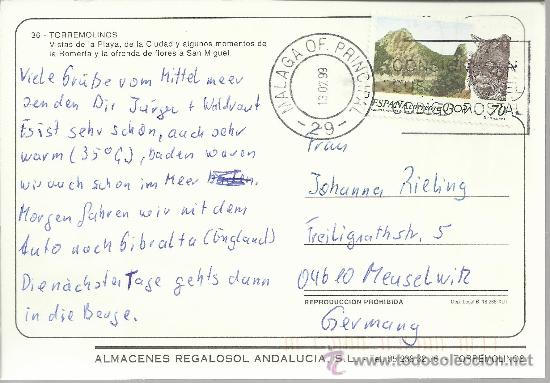 36 - TORREMOLINOS
Vistas de la Playa, de la Ciudad y algunos momentos de
la Romería y la ofrenda de flores a San Miguel.
Viele Grüße vom Mittelmeer
senden Dir Jürgen + Waldraut
Es ist sehr schön, auch sehr
warm (35°C), baden waren
wir auch schon im Meer
Morgen fahren wir mit dem
Auto nach Gibralta (England)
Die nächsten Tage gehts dann
in die Berge.
MALAGA OF. PRINCIPAL
- 29 -
ESPAÑA CORREOS 70
Frau
Johanna Rieling
Freiligrathstr. 5
04610 Meuselwitz
Germany
REPRODUCCIÓN PROHIBIDA
ALMACENES REGALOSOL ANDALUCIA, S.L. TORREMOLINOS
todocoleccion.net